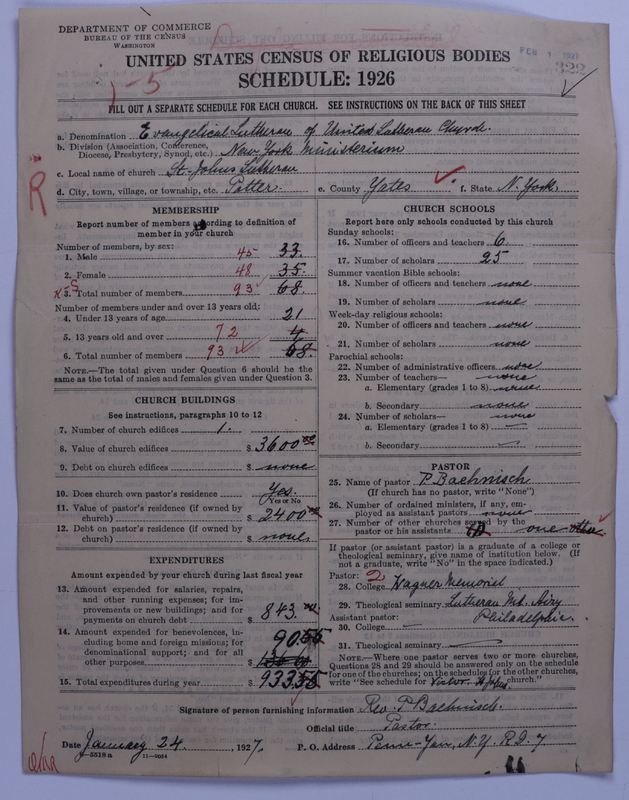 DEPARTMENT OF COMMERCE
BUREAU OF THE CENSUS
WASHINGTON
FEB 1 1927
322
1-5
UNITED STATES CENSUS OF RELIGIOUS BODIES
SCHEDULE: 1926
FILL OUT A SEPARATE SCHEDULE FOR EACH CHURCH. SEE INSTRUCTIONS ON THE BACK OF THIS SHEET
a. Denomination Evangelical Lutheran of United Lutheran Church.
b. Division (Association, Conference,
Diocese, Presbytery, Synod, etc.) New York Ministerium
c. Local name of church St. Johns Lutheran
d. City, town, village, or township, etc. Potter. e. County Yates f. State N. York.
R
MEMBERSHIP
Report number of members according to definition of
member in your church
Number of members, by sex:
1. Male 45 33.
2. Female 48 35.
3. Total number of members 93 68.
Number of members under and over 13 years old:
4. Under 13 years of age 21
5. 13 years old and over 72
6. Total number of members 93 68.
NOTE.—The total given under Question 6 should be
same as the total of males and females given under Question 3.
CHURCH BUILDINGS
See instructions, paragraphs 10 to 12
7. Number of church edifices 1.
8. Value of church edifices $ 3600.00
9. Debt on church edifices $ none
10. Does church own pastor's residence Yes.
Yes or No
11. Value of pastor's residence (if owned by
church) $ 2400
12. Debt on pastor's residence (if owned by
church) $ none.
EXPENDITURES
Amount expended by your church during last fiscal year
13. Amount expended for salaries, repairs,
and other running expenses; for im-
provements or new buildings; and for
payments on church debt $ 843.
14. Amount expended for benevolences, in-
cluding home and foreign missions; for
denominational support; and for all
other purposes $ 90.55
15. Total expenditures during year $ 933.55
CHURCH SCHOOLS
Report here only schools conducted by this church
Sunday schools:
16. Number of officers and teachers 6.
17. Number of scholars 25
Summer vacation Bible schools:
18. Number of officers and teachers none
19. Number of scholars none
Week-day religious schools:
20. Number of officers and teachers none
21. Number of scholars none
Parochial schools:
22. Number of administrative officers none
23. Number of teachers— none
a. Elementary (grades 1 to 8) none
b. Secondary none
24. Number of scholars— none
a. Elementary (grades 1 to 8) —
b. Secondary —
PASTOR
25. Name of pastor P. Baehnisch
(If church has no pastor, write "None")
26. Number of ordained ministers, if any, em-
ployed as assistant pastors none
27. Number of other churches served by the
pastor or his assistants one
If pastor (or assistant pastor) is a graduate of a college or
theological seminary, give name of institution below. (If
not a graduate, write "No" in the space indicated.)
Pastor: 2
28. College Wagner Memorial
29. Theological seminary Lutheran Mt. Airy
Assistant pastor: Philadelphia.
30. College —
31. Theological seminary —
NOTE.—Where one pastor serves two or more churches,
Questions 28 and 29 should be answered only on the schedule
for one of the churches; on the schedules for the other churches,
write "See schedule for church."
Signature of person furnishing information Rev. P. Baehnisch.
Official title Pastor.
Date January 24., 1927. P. O. Address Penn-Yan, N.Y. R.D. 7
8—5518 a 11—9054